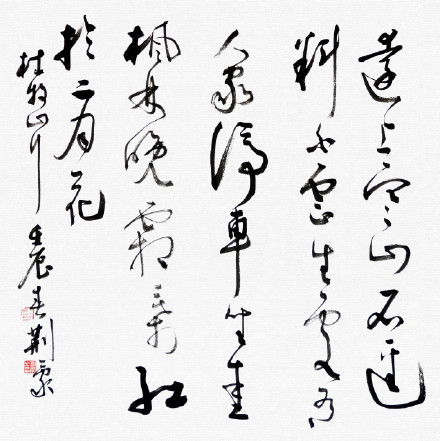 遠上寒山石逕
斜白雲生處有
人家停車坐愛
楓林晚霜葉紅
於二月花
杜牧山行 壬辰春 荆